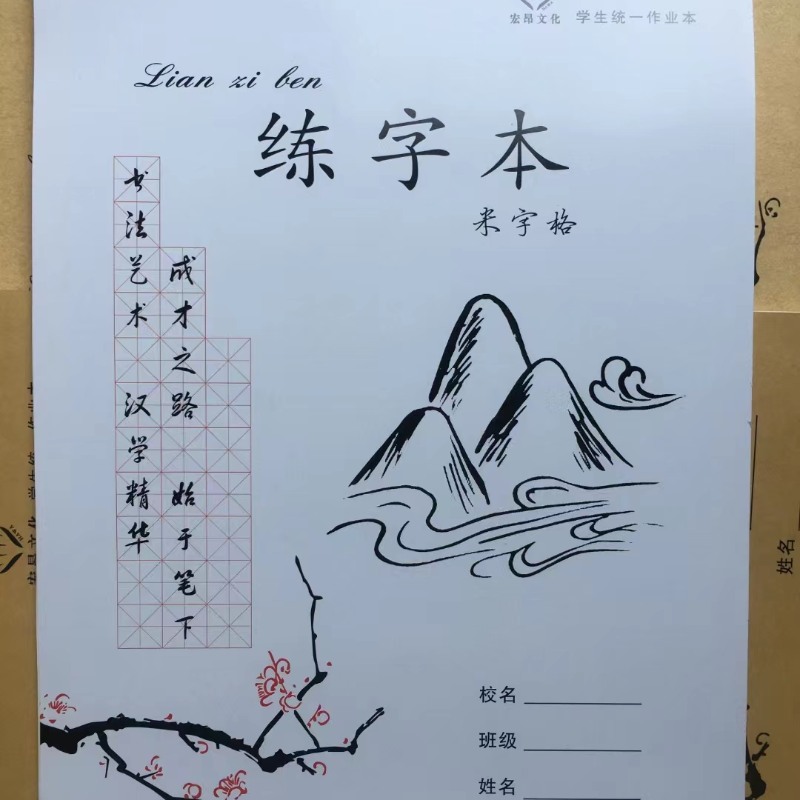 宏昂文化 学生统一作业本
Lian zi ben
练字本
米字格
书法艺术 汉学精华
成才之路 始于笔下
校名
班级
姓名
姓名